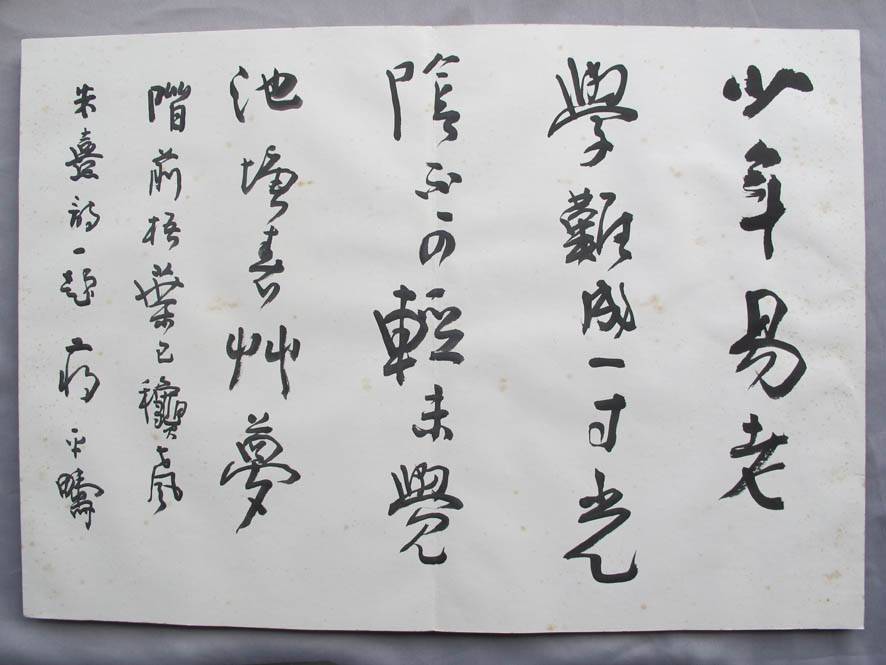 少年易老
學難成一寸光
陰不可輕未覺
池塘春艸夢
階前梧葉已龝聲
朱熹詩一題 蔣平疇